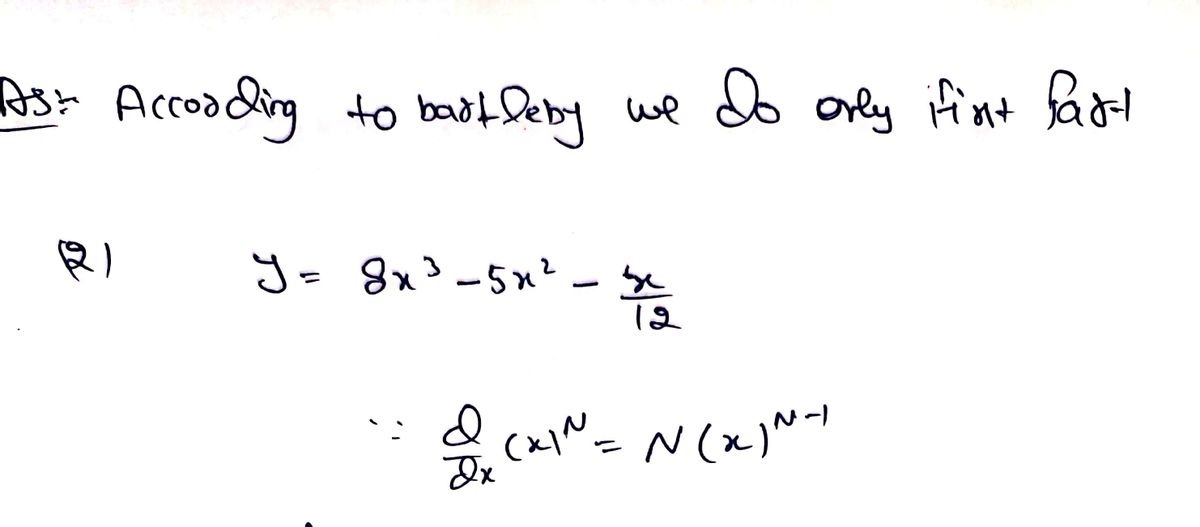 As:- According to bartleby we do only first part
Q1 y = 8x³ - 5x² - x/12
∵ d/dx (x)ᴺ = N(x)ᴺ⁻¹